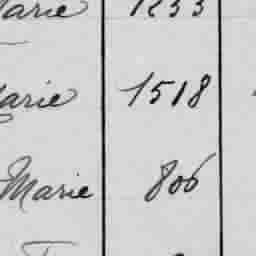 Marie 1233
Marie 1518
Marie 806